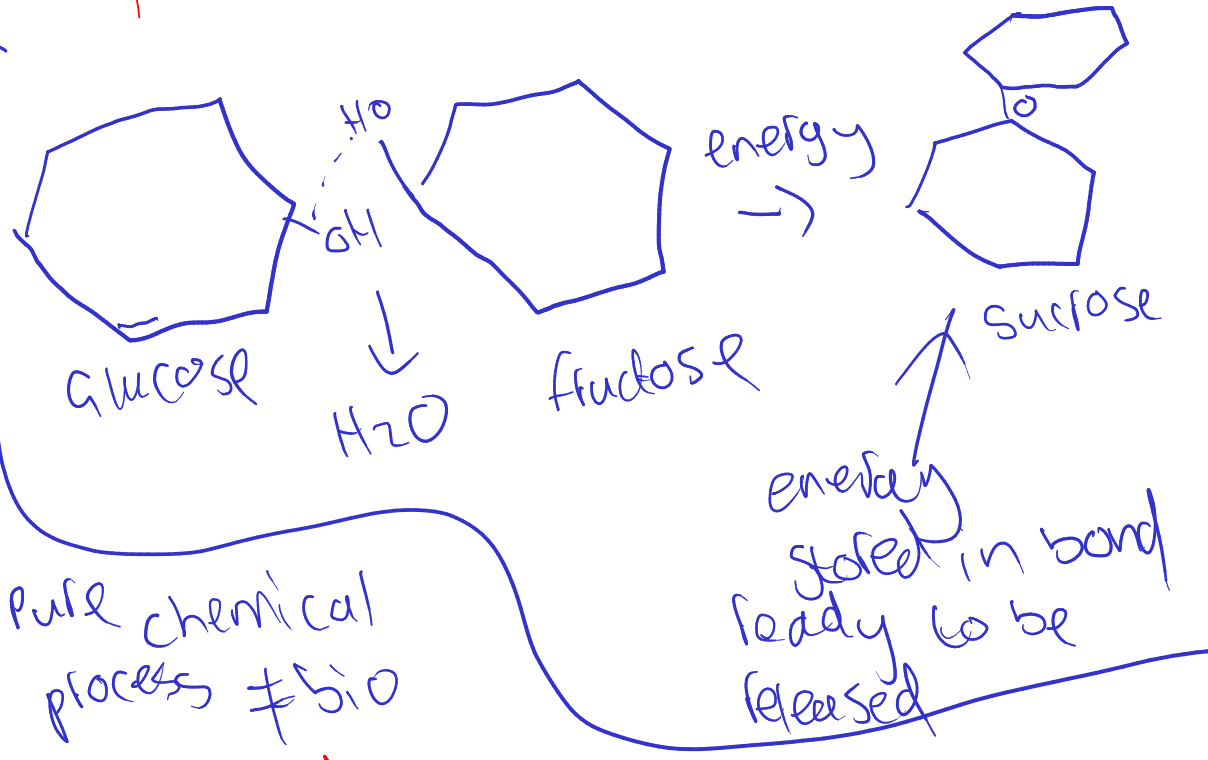 HO
OH
energy
→
O
Glucose
↓
H2O
fructose
sucrose
energy
stored in bond
ready to be
released
Pure chemical
process ≠ bio